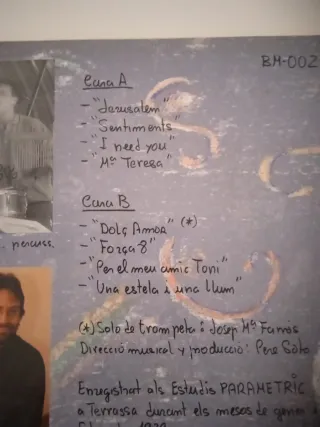 BM-002
Cara A
- "Jerusalem"
- "Sentiments"
- "I need you"
- "Mª Teresa"
Cara B
- "Dolç Amor" (*)
- "Força 8"
- "Per el meu amic Toni"
- "Una estela i una llum"
. percuss.
(*) Solo de trompeta: Josep Mª Farràs
Direcció musical y producció: Pere Soto
Enregistrat als Estudis PARAMETRIC
a Terrassa durant els mesos de gener i